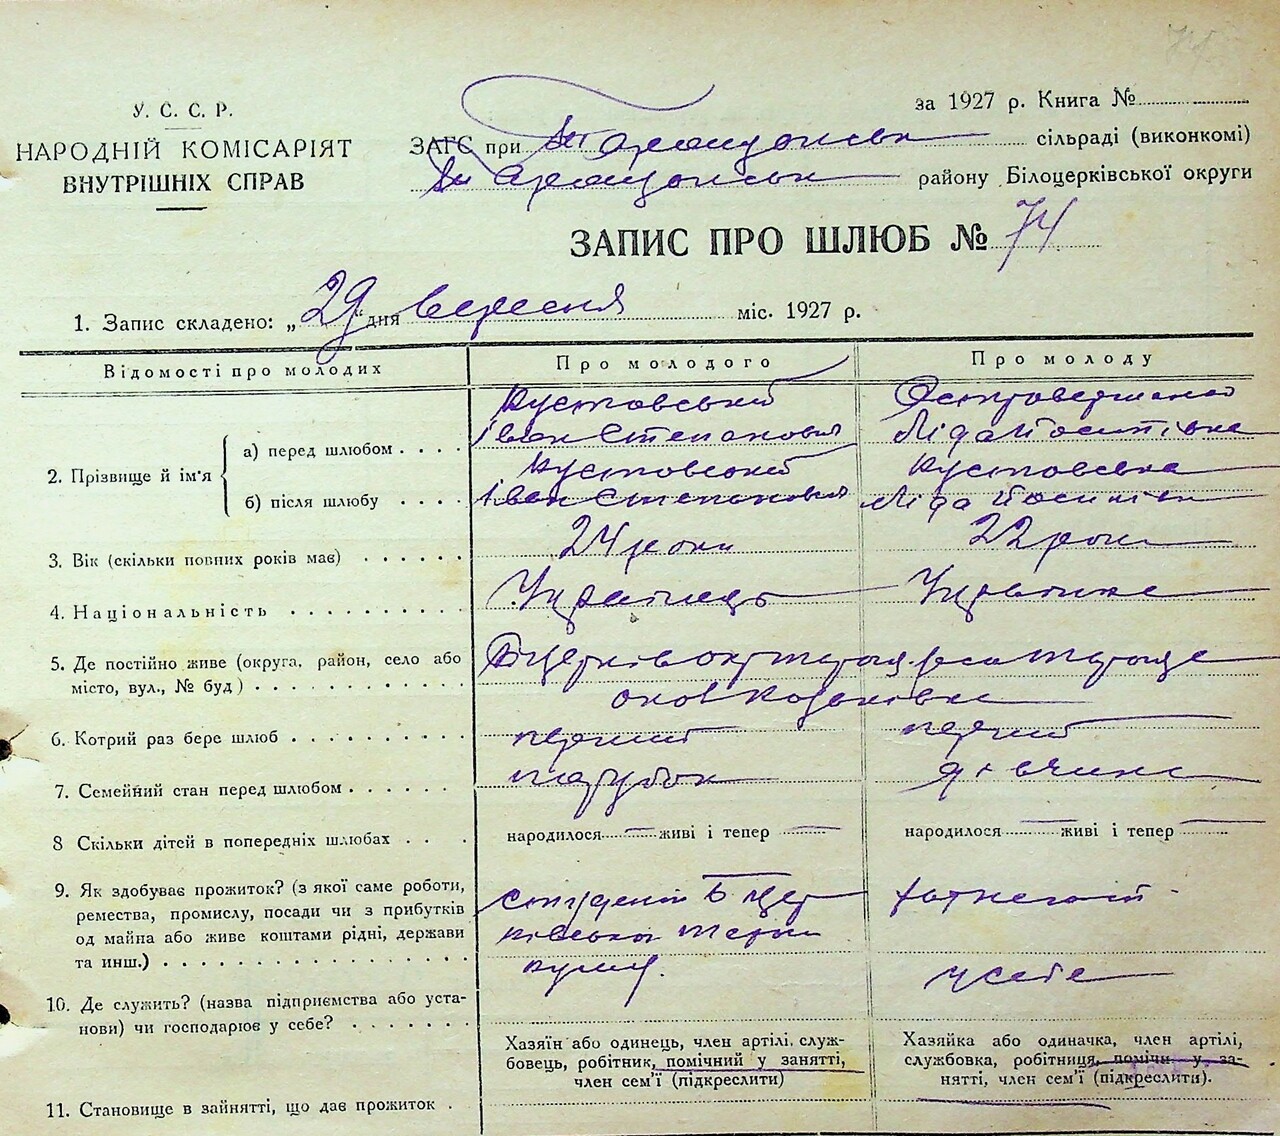 74
У. С. С. Р.
НАРОДНІЙ КОМІСАРІЯТ
ВНУТРІШНІХ СПРАВ
за 1927 р. Книга №
ЗАГС при Таращанськ сільраді (виконкомі)
Таращанськ району Білоцерківської округи
ЗАПИС ПРО ШЛЮБ № 74
1. Запис складено: „29“ дня вересня міс. 1927 р.
Відомості про молодих
Про молодого
Про молоду
2. Прізвище й ім'я
а) перед шлюбом
Кустовський
Іван Степанович
Ліда Йосипівна
б) після шлюбу
Кустовський
Іван Степанович
Кустовська
Ліда Йосипів
3. Вік (скільки повних років має)
24 роки
22 роки
4. Національність
Українець
Українка
5. Де постійно живе (округа, район, село або
місто, вул., № буд)
6. Котрий раз бере шлюб
перший
перший
7. Семейний стан перед шлюбом
парубок
дівчина
8 Скільки дітей в попередніх шлюбах
народилося — живі і тепер —
народилося — живі і тепер —
9. Як здобуває прожиток? (з якої саме роботи,
ремества, промислу, посади чи з прибутків
од майна або живе коштами рідні, держави
та инш.)
студент Б Цер
ківської
10. Де служить? (назва підприємства або уста-
нови) чи господарює у себе?
у себе
Хазяїн або одинець, член артілі, служ-
бовець, робітник, помічний у занятті,
член сем'ї (підкреслити)
Хазяйка або одиначка, член артілі,
службовка, робітниця, помічн. у за-
нятті, член сем'ї (підкреслити).
11. Становище в зайнятті, що дає прожиток